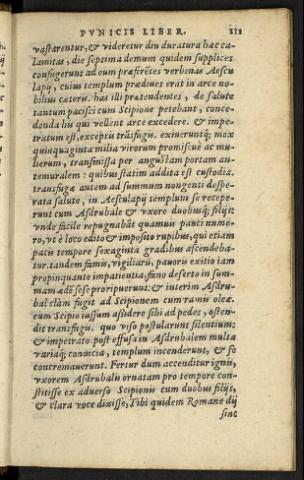 PVNICIS LIBER. 218
vastarentur, & videretur diu duratura hæc ca-
lamitas, die septima demum quidem supplices
confugerunt ad eum præferẽtes verbenas Æscu
lapij, cuius templum prædiues erat in arce no-
bilius cæteris. has illi prætendentes, de salute
tantum pacisci cum Scipione petebant, conce-
denda his qui vellent arce excedere. & impe-
tratum est, exceptis trãsfugis. exiueruntq; mox
quinquaginta milia virorum promiscuè ac mu-
lierum, transmissa per angustam portam an-
temuralem: quibus statim addita est custodia.
transfugæ autem ad summum nongenti despe-
rata salute, in Aesculapij templum se recepe-
runt cum Asdrubale & vxore duobusq; filijs
vnde facile repugnabãt quamuis pauci nume-
ro, vt è loco edito & imposito rupibus, qui etiam
pacis tempore sexaginta gradibus ascendeba-
tur. tandem famis, vigiliarũ, pauoris exitio iam
propinquante impatientia, fano deserto in sum-
mam ædẽ sese proripuerunt: & interim Asdru-
bal clàm fugit ad Scipionem cum ramis oleæ.
eum Scipio iussum assidere sibi ad pedes, osten-
dit transfugis. quo viso postularunt silentium:
& impetrato post effusa in Asdrubalem multa
variaq; conuicia, templum incenderunt, & se
concremauerunt. Fertur dum accenditur ignis,
vxorem Asdrubalis ornatam pro tempore con-
stitisse ex aduerso Scipionis cum duobus filijs,
& clara voce dixisse, Tibi quidem Romane dij
sint